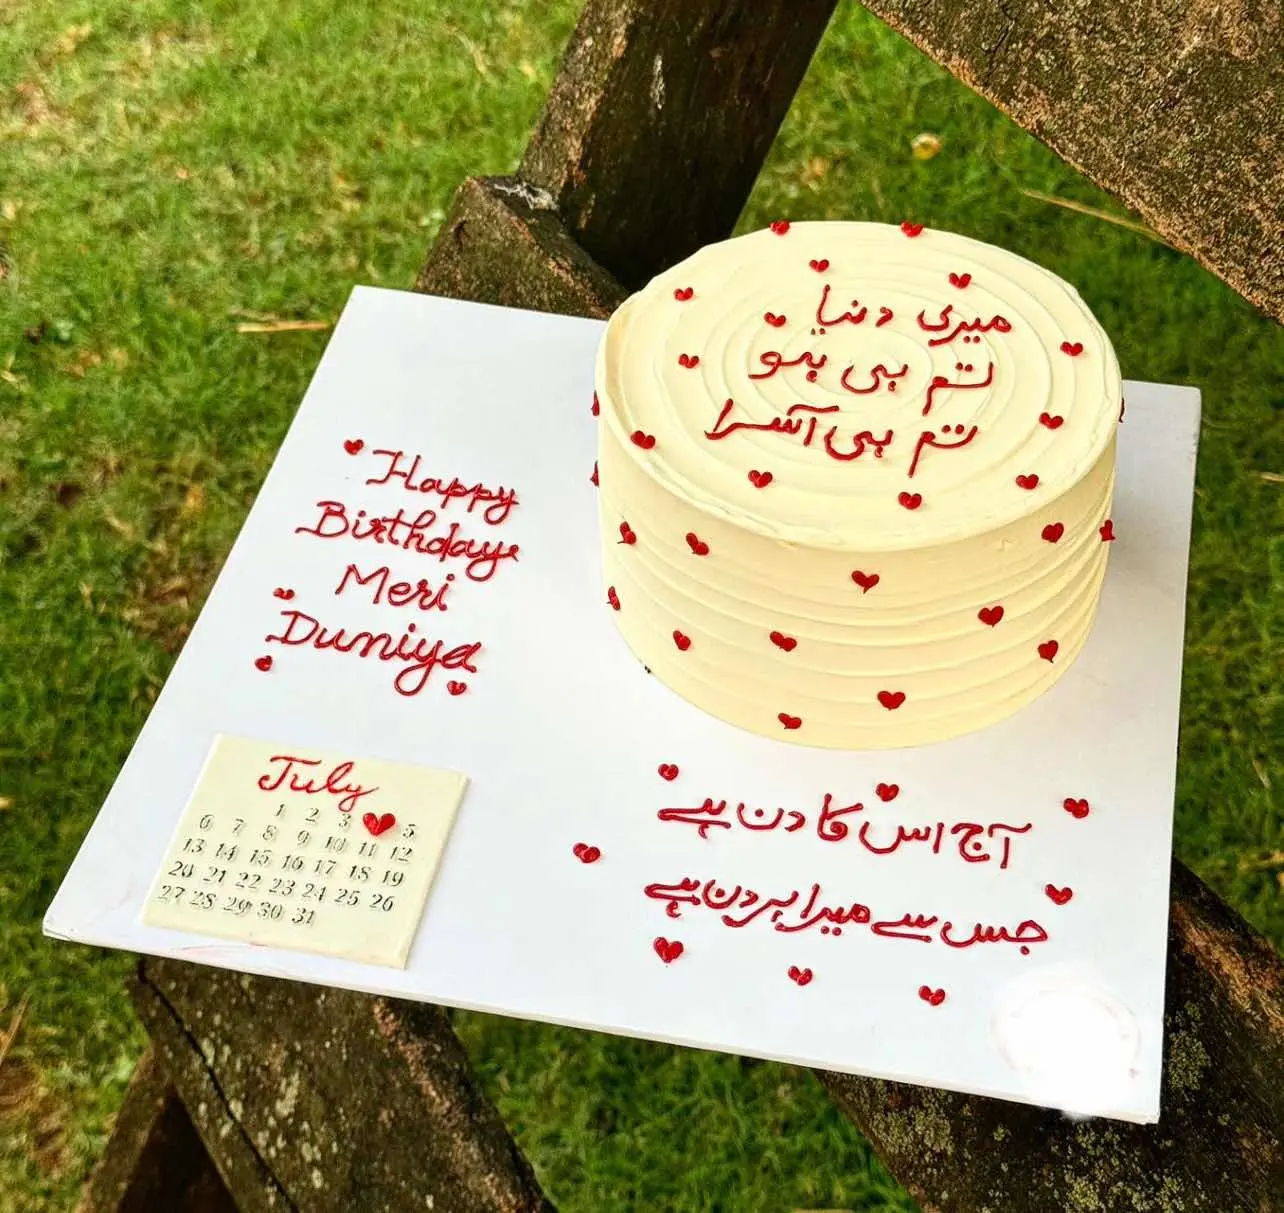 میری دنیا
تم ہی ہو
تم ہی آسرا
Happy
Birthday
Meri
Duniya
July
1 2 3 5
6 7 8 9 10 11 12
13 14 15 16 17 18 19
20 21 22 23 24 25 26
27 28 29 30 31
آج اس کا دن ہے
جس سے میرا ہر دن ہے